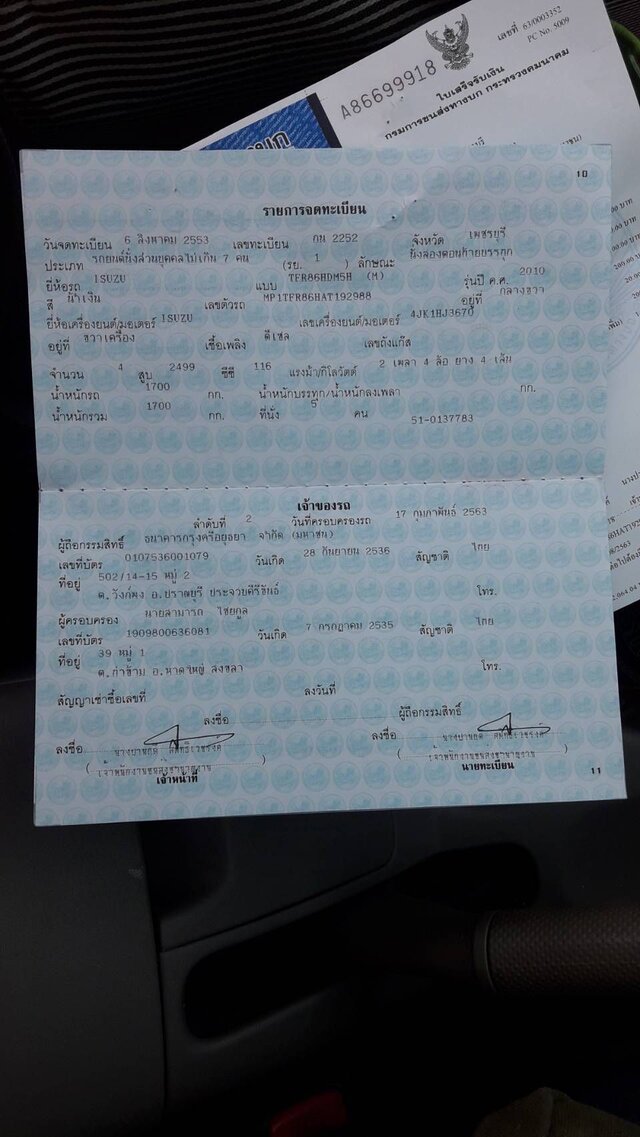 เลขที่ 63/0003352
PC No. 5009
A86699918
ใบเสร็จรับเงิน
กรมการขนส่งทางบก กระทรวงคมนาคม
10
รายการจดทะเบียน
วันจดทะเบียน 6 สิงหาคม 2553 เลขทะเบียน กน 2252 จังหวัด เพชรบุรี
ประเภท รถยนต์นั่งส่วนบุคคลไม่เกิน 7 คน (รย. 1 ) ลักษณะ นั่งสองตอนท้ายบรรทุก
ยี่ห้อรถ ISUZU แบบ TFR86HDM5H (M) รุ่นปี ค.ศ. 2010
สี น้ำเงิน เลขตัวรถ MP1TFR86HAT192988 อยู่ที่ กลางขวา
ยี่ห้อเครื่องยนต์/มอเตอร์ ISUZU เลขเครื่องยนต์/มอเตอร์ 4JK1HJ3670
อยู่ที่ ขวาเครื่อง เชื้อเพลิง ดีเซล เลขถังแก๊ส
จำนวน 4 สูบ 2499 ซีซี 116 แรงม้า/กิโลวัตต์ 2 เพลา 4 ล้อ ยาง 4 เส้น
น้ำหนักรถ 1700 กก. น้ำหนักบรรทุก/น้ำหนักลงเพลา กก.
น้ำหนักรวม 1700 กก. ที่นั่ง 5 คน 51-0137783
เจ้าของรถ
ลำดับที่ 2 วันที่ครอบครองรถ 17 กุมภาพันธ์ 2563
ผู้ถือกรรมสิทธิ์ ธนาคารกรุงศรีอยุธยา จำกัด (มหาชน)
เลขที่บัตร 0107536001079 วันเกิด 28 กันยายน 2536 สัญชาติ ไทย
ที่อยู่ 502/14-15 หมู่ 2
ต.วังก์พง อ.ปราณบุรี ประจวบคีรีขันธ์ โทร.
ผู้ครอบครอง นายสามารถ ไชยกูล
เลขที่บัตร 1909800636081 วันเกิด 7 กรกฎาคม 2535 สัญชาติ ไทย
ที่อยู่ 39 หมู่ 1
ต.ทุ่งใหญ่ อ.หาดใหญ่ สงขลา โทร.
สัญญาเช่าซื้อเลขที่ ลงวันที่
ลงชื่อ ผู้ถือกรรมสิทธิ์
ลงชื่อ ลงชื่อ
(เจ้าพนักงานขนส่งชำนาญงาน) (เจ้าพนักงานขนส่งชำนาญงาน)
เจ้าหน้าที่ นายทะเบียน
11